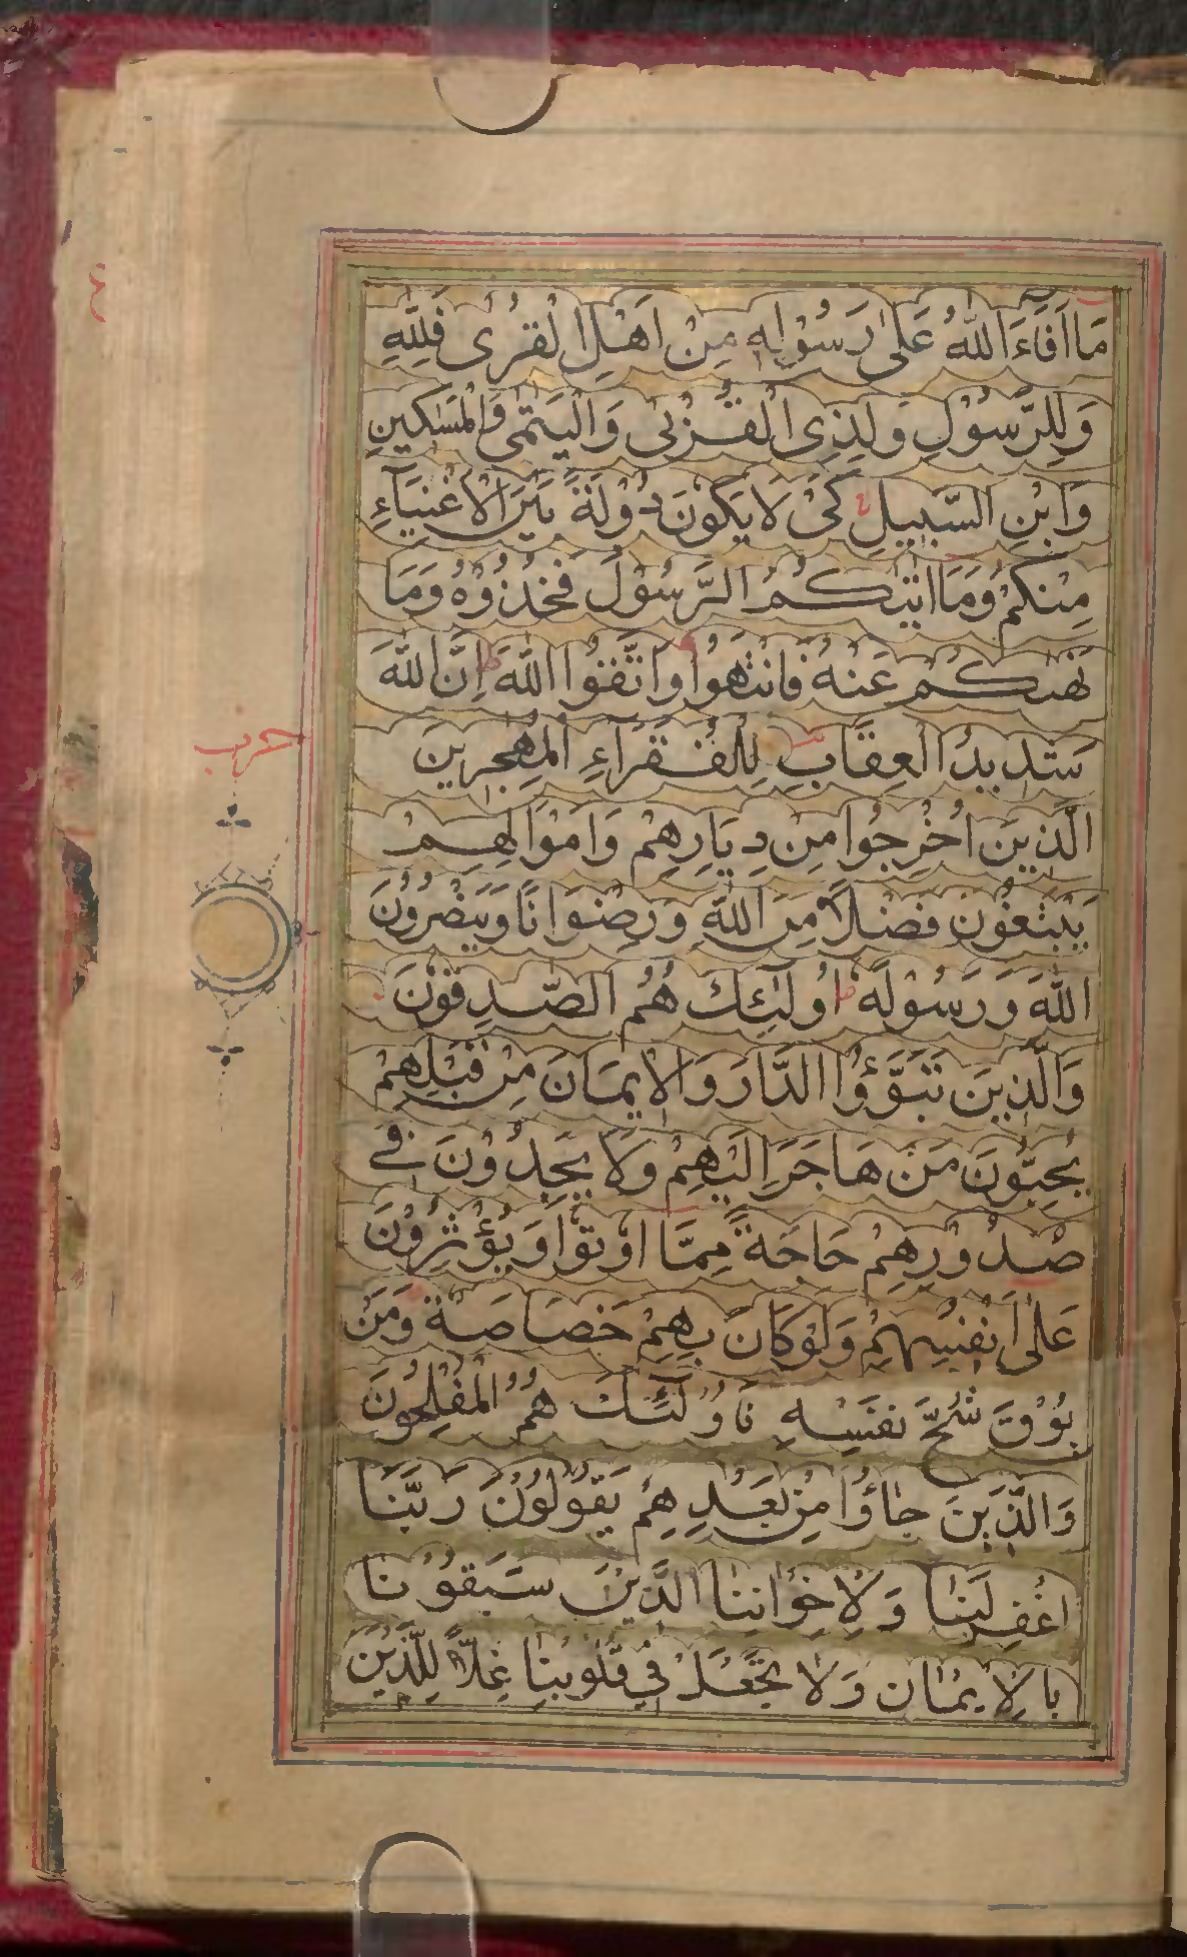 مَا اَفَاءَ اللّٰهُ عَلٰى رَسُوْلِهٖ مِنْ اَهْلِ الْقُرٰى فَلِلّٰهِ
وَلِلرَّسُوْلِ وَلِذِى الْقُرْبٰى وَالْيَتٰمٰى وَالْمَسٰكِيْنِ
وَابْنِ السَّبِيلِ كَىْ لَا يَكُوْنَ دُوْلَةً بَيْنَ الْاَغْنِيَآءِ
مِنْكُمْ وَمَا اٰتٰيكُمُ الرَّسُوْلُ فَخُذُوْهُ وَمَا
نَهٰيكُمْ عَنْهُ فَانْتَهُوْا وَاتَّقُوا اللّٰهَ اِنَّ اللّٰهَ
شَدِيدُ الْعِقَابِ لِلْفُقَرَآءِ الْمُهٰجِرِينَ
حزب
الَّذِينَ اُخْرِجُوا مِنْ دِيَارِهِمْ وَاَمْوَالِهِمْ
يَبْتَغُوْنَ فَضْلًا مِنَ اللّٰهِ وَرِضْوَانًا وَيَنْصُرُوْنَ
اللّٰهَ وَرَسُوْلَهٗ اُولٰٓئِكَ هُمُ الصّٰدِقُوْنَ
وَالَّذِينَ تَبَوَّؤُا الدَّارَ وَالْاِيمَانَ مِنْ قَبْلِهِمْ
يُحِبُّوْنَ مَنْ هَاجَرَ اِلَيْهِمْ وَلَا يَجِدُوْنَ فِي
صُدُوْرِهِمْ حَاجَةً مِمَّا اُوْتُوْا وَيُؤْثِرُوْنَ
عَلٰى اَنْفُسِهِمْ وَلَوْ كَانَ بِهِمْ خَصَاصَةٌ وَمَنْ
يُوْقَ شُحَّ نَفْسِهِ فَاُولٰٓئِكَ هُمُ الْمُفْلِحُوْنَ
وَالَّذِينَ جَاؤُا مِنْ بَعْدِهِمْ يَقُوْلُوْنَ رَبَّنَا
اغْفِرْ لَنَا وَلِاِخْوَانِنَا الَّذِيْنَ سَبَقُوْنَا
بِالْاِيمَانِ وَلَا تَجْعَلْ فِي قُلُوْبِنَا غِلًّا لِلَّذِيْنَ